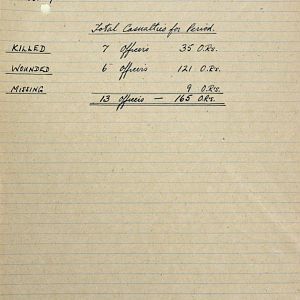 Total Casualties for Period.
KILLED 7 officers 35 O.Rs.
WOUNDED 6 officers 121 O.Rs.
MISSING 9 O.Rs.
13 officers — 165 O.Rs.